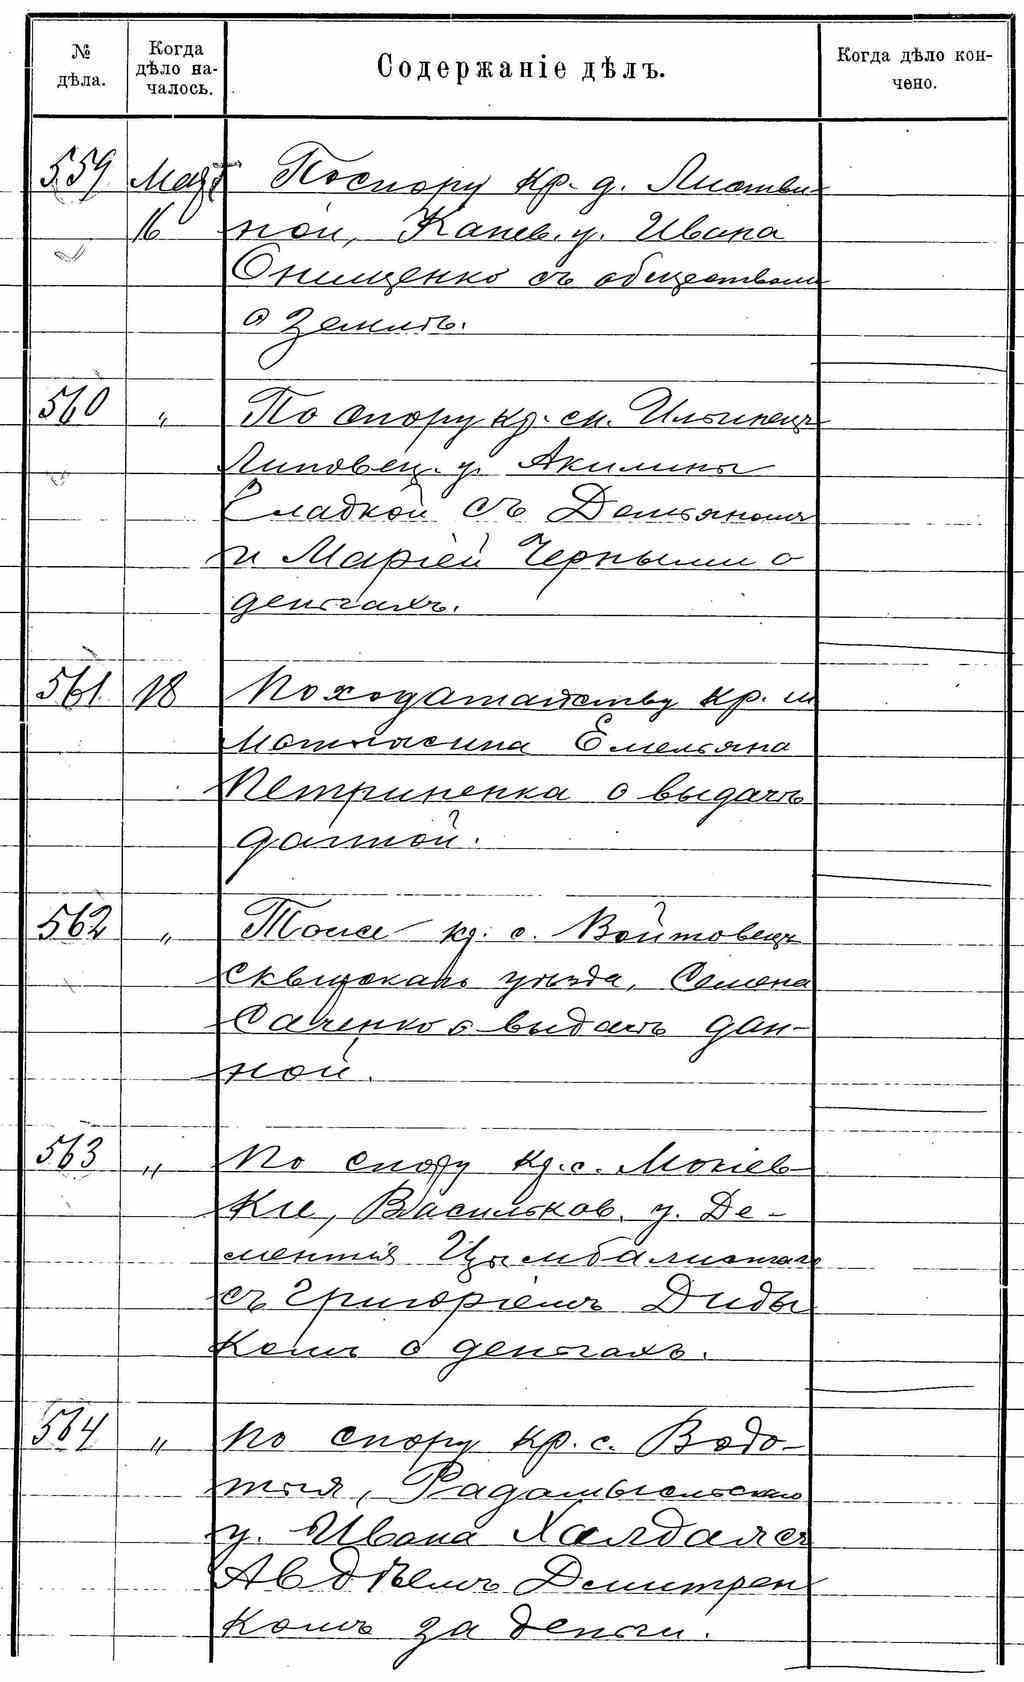 № дѣла.
Когда дѣло на-
чалось.
Содержаніе дѣлъ.
Когда дѣло кон-
чено.
559 Мая По спору кр. д. Листви-
16 ной, Канев. у. Ивана
Онищенко съ обществомъ
о землѣ.
560 „ По спору кр. сн. Ильинецъ
Липовец. у. Акилины
Гладкой съ Демьяномъ
и Маріей Черными о
деньгахъ.
561 18 По ходатайству кр. м
Мотысина Емельяна
Петриненка о выдачѣ
данной.
562 „ Тоже кр. с. Войтовецъ
Сквирскаго уѣзда, Семена
Саченко о выдачѣ дан-
ной.
563 „ По спору кр. с. Мохнев-
ки, Васильков. у. Де-
ментія Цымбалистаго
съ Григоріемъ Диды
комъ о деньгахъ.
564 „ По спору кр. с. Водо-
тыя, Радомысльскаго
у. Ивана Халдая съ
Авдѣемъ Дмитрен
комъ за деньги.